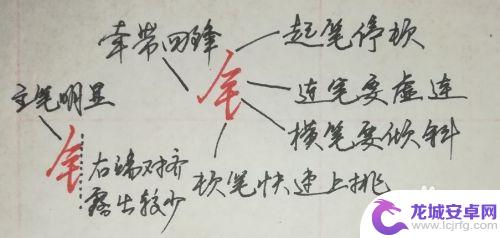 牵带回锋
起笔停顿
主笔明显
年
连笔要虚连
横笔要倾斜
年
右端对齐
露出较少
顿笔快速上挑
龙城安卓网
www.lcjrfg.com